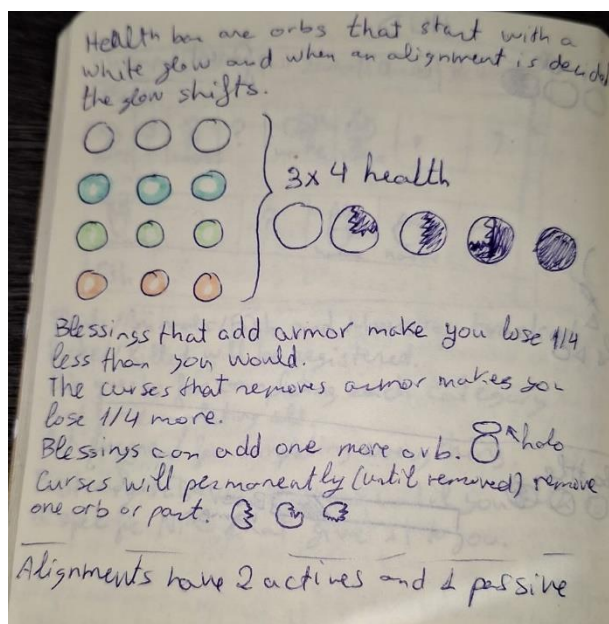 Health bar are orbs that start with a
white glow and when an alignment is decided
the glow shifts.
3x4 health
Blessings that add armor make you lose 1/4
less than you would.
The curses that removes armor makes you
lose 1/4 more.
Blessings can add one more orb. halo
Curses will permanently (until removed) remove
one orb or part.
Alignments have 2 actives and 1 passive